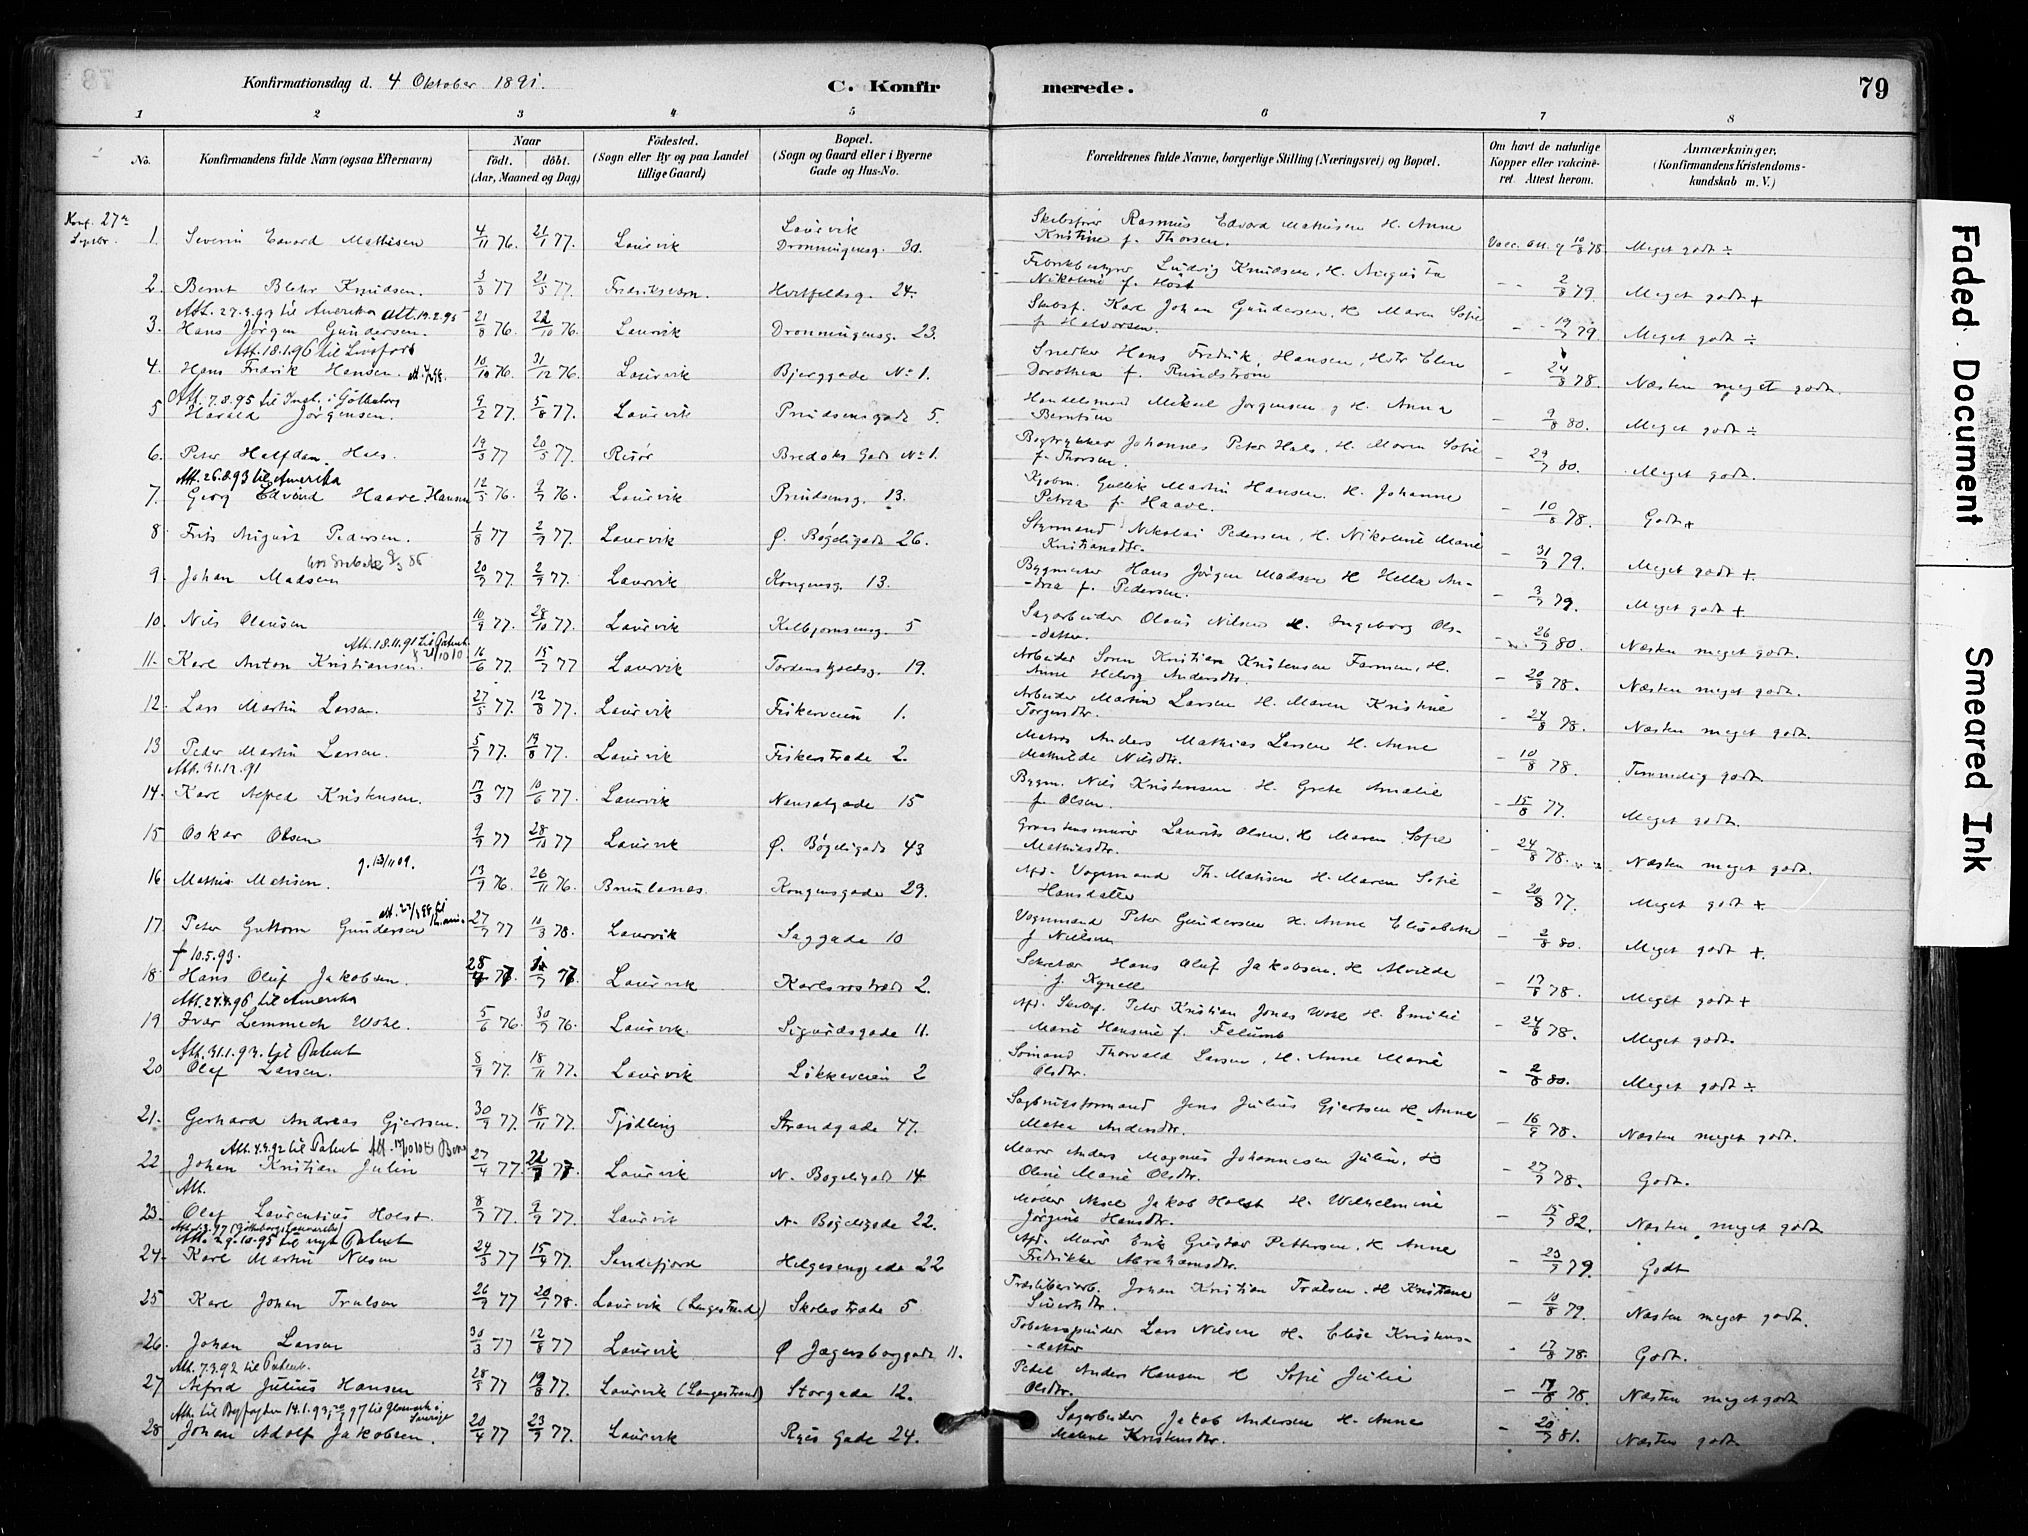 Konfirmationsdag d. 4 Oktober 1891. C. Konfirmerede. 79
1 2 3 4 5 6 7 8
No. Konfirmandens fulde Navn (ogsaa Efternavn) Naar født. døbt. (Aar, Maaned og Dag) Fødested. (Sogn eller By og paa Landet tillige Gaard) Bopæl. (Sogn og Gaard eller i Byerne Gade og Hus-No. Forældrenes fulde Navne, borgerlige Stilling (Næringsvei) og Bopæl. Om havt de naturlige Kopper eller vakcineret. Attest herom. Anmærkninger, (Konfirmandens Kristendomskundskab m. V.)
1. Severin Edvard Mathisen 4/11 76. 21/1 77. Laurvik Laurvik Dronningensg. 30. Skibsfører Rasmus Edvard Mathisen H. Anne Kristine f. Thorsen. Vacc. att. af 10/8 78 Meget godt ÷
2. Bernt Blehr Knudsen. 3/3 77 21/5 77. Fredriksværn. Hvitfeldsg. 24. Fabrikbestyrer Ludvig Knudsen, H. Augusta Nikoline f. Høst - - 2/8 79. Meget godt +
Att. 27.4.93 til Amerika Att. 19.2.95
3. Hans Jørgen Gundersen. 21/8 76. 22/10 76. Laurvik Dronningensg. 23. Skibsf. Karl Johan Gundersen, H. Maren Sofie f. Halvorsen. - - 19/7 79. Meget godt ÷
Att. 18.1.96 til
4. Hans Fredrik Hansen. 10/10 76. 31/12 76. Laurvik Bjerggade No 1. Snedker Hans Fredrik Hansen, Hstr Elen Dorothea f. Rundstrøm - 24/8 78. Næsten meget godt.
Att. 7.8.95 til Indl. i Gøteborg
5 Harald Jørgensen. 9/2 77. 5/8 77. Laurvik Prindsensgade 5. Handelsmand Mikael Jørgensen og H. Anna Berntsen - 9/8 80. Meget godt ÷
6. Peter Halfdan Hals. 19/3 77 20/5 77. Risør Bredoks Gade No 1. Bogtrykker Johannes Peter Hals, H. Maren Sofie f. Thorsen. - 29/7 80. Meget godt.
Att. 26.8.93 til Amerika
7. Georg Edvard Haave Hansen 12/3 76. 2/7 76. Laurvik Prindsensg. 13. Kjøbm. Gullik Martin Hansen. H. Johanne Petrea f. Haave. - 10/8 78. Godt +
8. Frits August Pedersen. 1/8 77 2/9 77. Laurvik Ø. Bøgeligade 26. Styrmand Nikolai Pedersen, H. Nikoline Marie Kristiansdtr. - 31/7 79. Meget godt +.
9. Johan Madsen 20/7 77. 2/9 77. Laurvik Kongensg. 13. Bygmester Hans Jørgen Madsen H Hella Andrea f. Pedersen. - 3/7 79. Meget godt +
10. Nils Olausen 10/9 77. 28/10 77. Laurvik Kolbjørnsensg. 5 Sagarbeider Olaus Nilsen H. Ingeborg Olsdatter. - 26/7 80. Næsten meget godt.
Att. 18.11.91 til Patent
11. Karl Anton Kristiansen. 16/6 77. 15/7 77 Laurvik Tordenskjoldsg. 19. Arbeider Søren Kristian Kristensen Farmen, H. Anne Helvig Andersdtr. - 20/8 78. Næsten meget godt.
12. Lars Martin Larsen. 27/5 77. 12/8 77. Laurvik Fiskerveien 1. Arbeider Martin Larsen H. Maren Kristine Torgersdtr. - 24/8 78. Næsten meget godt.
13 Peder Martin Larsen. 5/7 77. 19/8 77. Laurvik Fiskerstræde 2. Matros Anders Mathias Larsen H. Anne Mathilde Nilsdtr. - 10/8 78. Temmelig godt.
Att. 31.12.91
14. Karl Alfred Kristensen. 17/3 77 10/6 77. Laurvik Nansetgade 15 Bygm. Nils Kristensen. H. Grete Amalie f. Olsen. - 15/8 77. Meget godt.
15 Oskar Olsen 9/9 77 28/10 77 Laurvik Ø. Bøgeligade 43 Graastensmurer Laurits Olsen, H. Maren Sofie Mathiasdtr. - 24/8 78. Næsten meget godt.
16 Mathis Mathisen. 13/9 76. 26/11 76. Brunlanes. Kongensgade 29. Afd. Vognmand Th. Mathisen H. Maren Sofie Hansdatter - 20/8 77. Meget godt +.
17. Peter Guttorm Gundersen 27/7 77 10/3 78. Laurvik Saggade 10 Vognmand Peter Gundersen H. Anne Elisabeth f Nielsen - 2/8 80. Meget godt +.
† 10.5.93.
18. Hans Oluf Jakobsen. Laurvik Karlsrostræde 2. Sekretær Hans Oluf Jakobsen. H. Alvilde f. Kynell - 17/8 78. Meget godt +
Att. 24.4.96 til Amerika
19. Ivar Lemmech Wohl. 5/6 76. 30/9 76. Laurvik. Sigurdsgade 11. Afd. Skibsf. Peter Kristian Jonas Wohl H. Emilie Marie Hansine f. Felumb - 24/8 78. Meget godt.
Att. 31.1.93. til Patent
20 Olaf Larsen. 8/9 77. 18/11 77. Laurvik Løkkeveien 2 Sømand Thorvald Larsen, H. Anne Marie Olsdtr. - 2/8 80. Meget godt ÷
21. Gerhard Andreas Gjertsen. 30/9 77. 18/11 77. Tjødling Strandgade 47. Sagbrugsformand Jens Julius Gjertsen H. Anne Matea Andersdtr. - 16/9 78. Næsten meget godt.
Att. 4.4.92 til Patent
22 Johan Kristian Julin 27/4 77. Laurvik N. Bøgeligade 14 Murer Anders Magnus Johannesen Julin, H Oline Marie Olsdtr. - 27/7 78. Godt.
Att.
23. Olaf Laurentius Holst. 8/7 77. 9/9 77. Laurvik N. Bøgeligade 22. Møller Aksel Jakob Holst H. Wilhelmine Jørgine Hansdtr. - 15/7 82. Næsten meget godt
Att. 29.10.95 til nyt Patent
24. Karl Martin Nilsen 24/3 77 15/4 77. Sandefjord Helgesensgade 22 Afd. Murer Erik Gustav Pettersen, H Anne Fredrikke Abrahamsdtr. - 23/7 79. Godt
25 Karl Johan Trulsen 26/9 77 20/1 78. Laurvik (Langestrand) Skolestræde 5 Træsliberiarb. Johan Kristian Trulsen. H Kristiane Sivertsdtr. - 10/8 79. Næsten meget godt.
26. Johan Larsen 30/3 77 12/8 77. Laurvik Ø Jegersborggade 11. Tobakspinder Lars Nilsen H. Elise Kristensdatter - 17/8 78. Godt.
Att. 7.3.92 til Patent.
27 Alfred Julius Hansen 28/5 77 19/8 77. Laurvik (Langestrand) Storgade 12. Pedel Anders Hansen H Sofie Julie Olsdtr. - 17/8 78. Næsten meget godt
28 Johan Adolf Jakobsen. 20/4 77 23/9 77. Laurvik Ryes Gade 24. Sagarbeider Jakob Andersen H. Anne Maline Kristensdtr. - 20/7 81. Næsten godt.
Faded Document
Smeared Ink